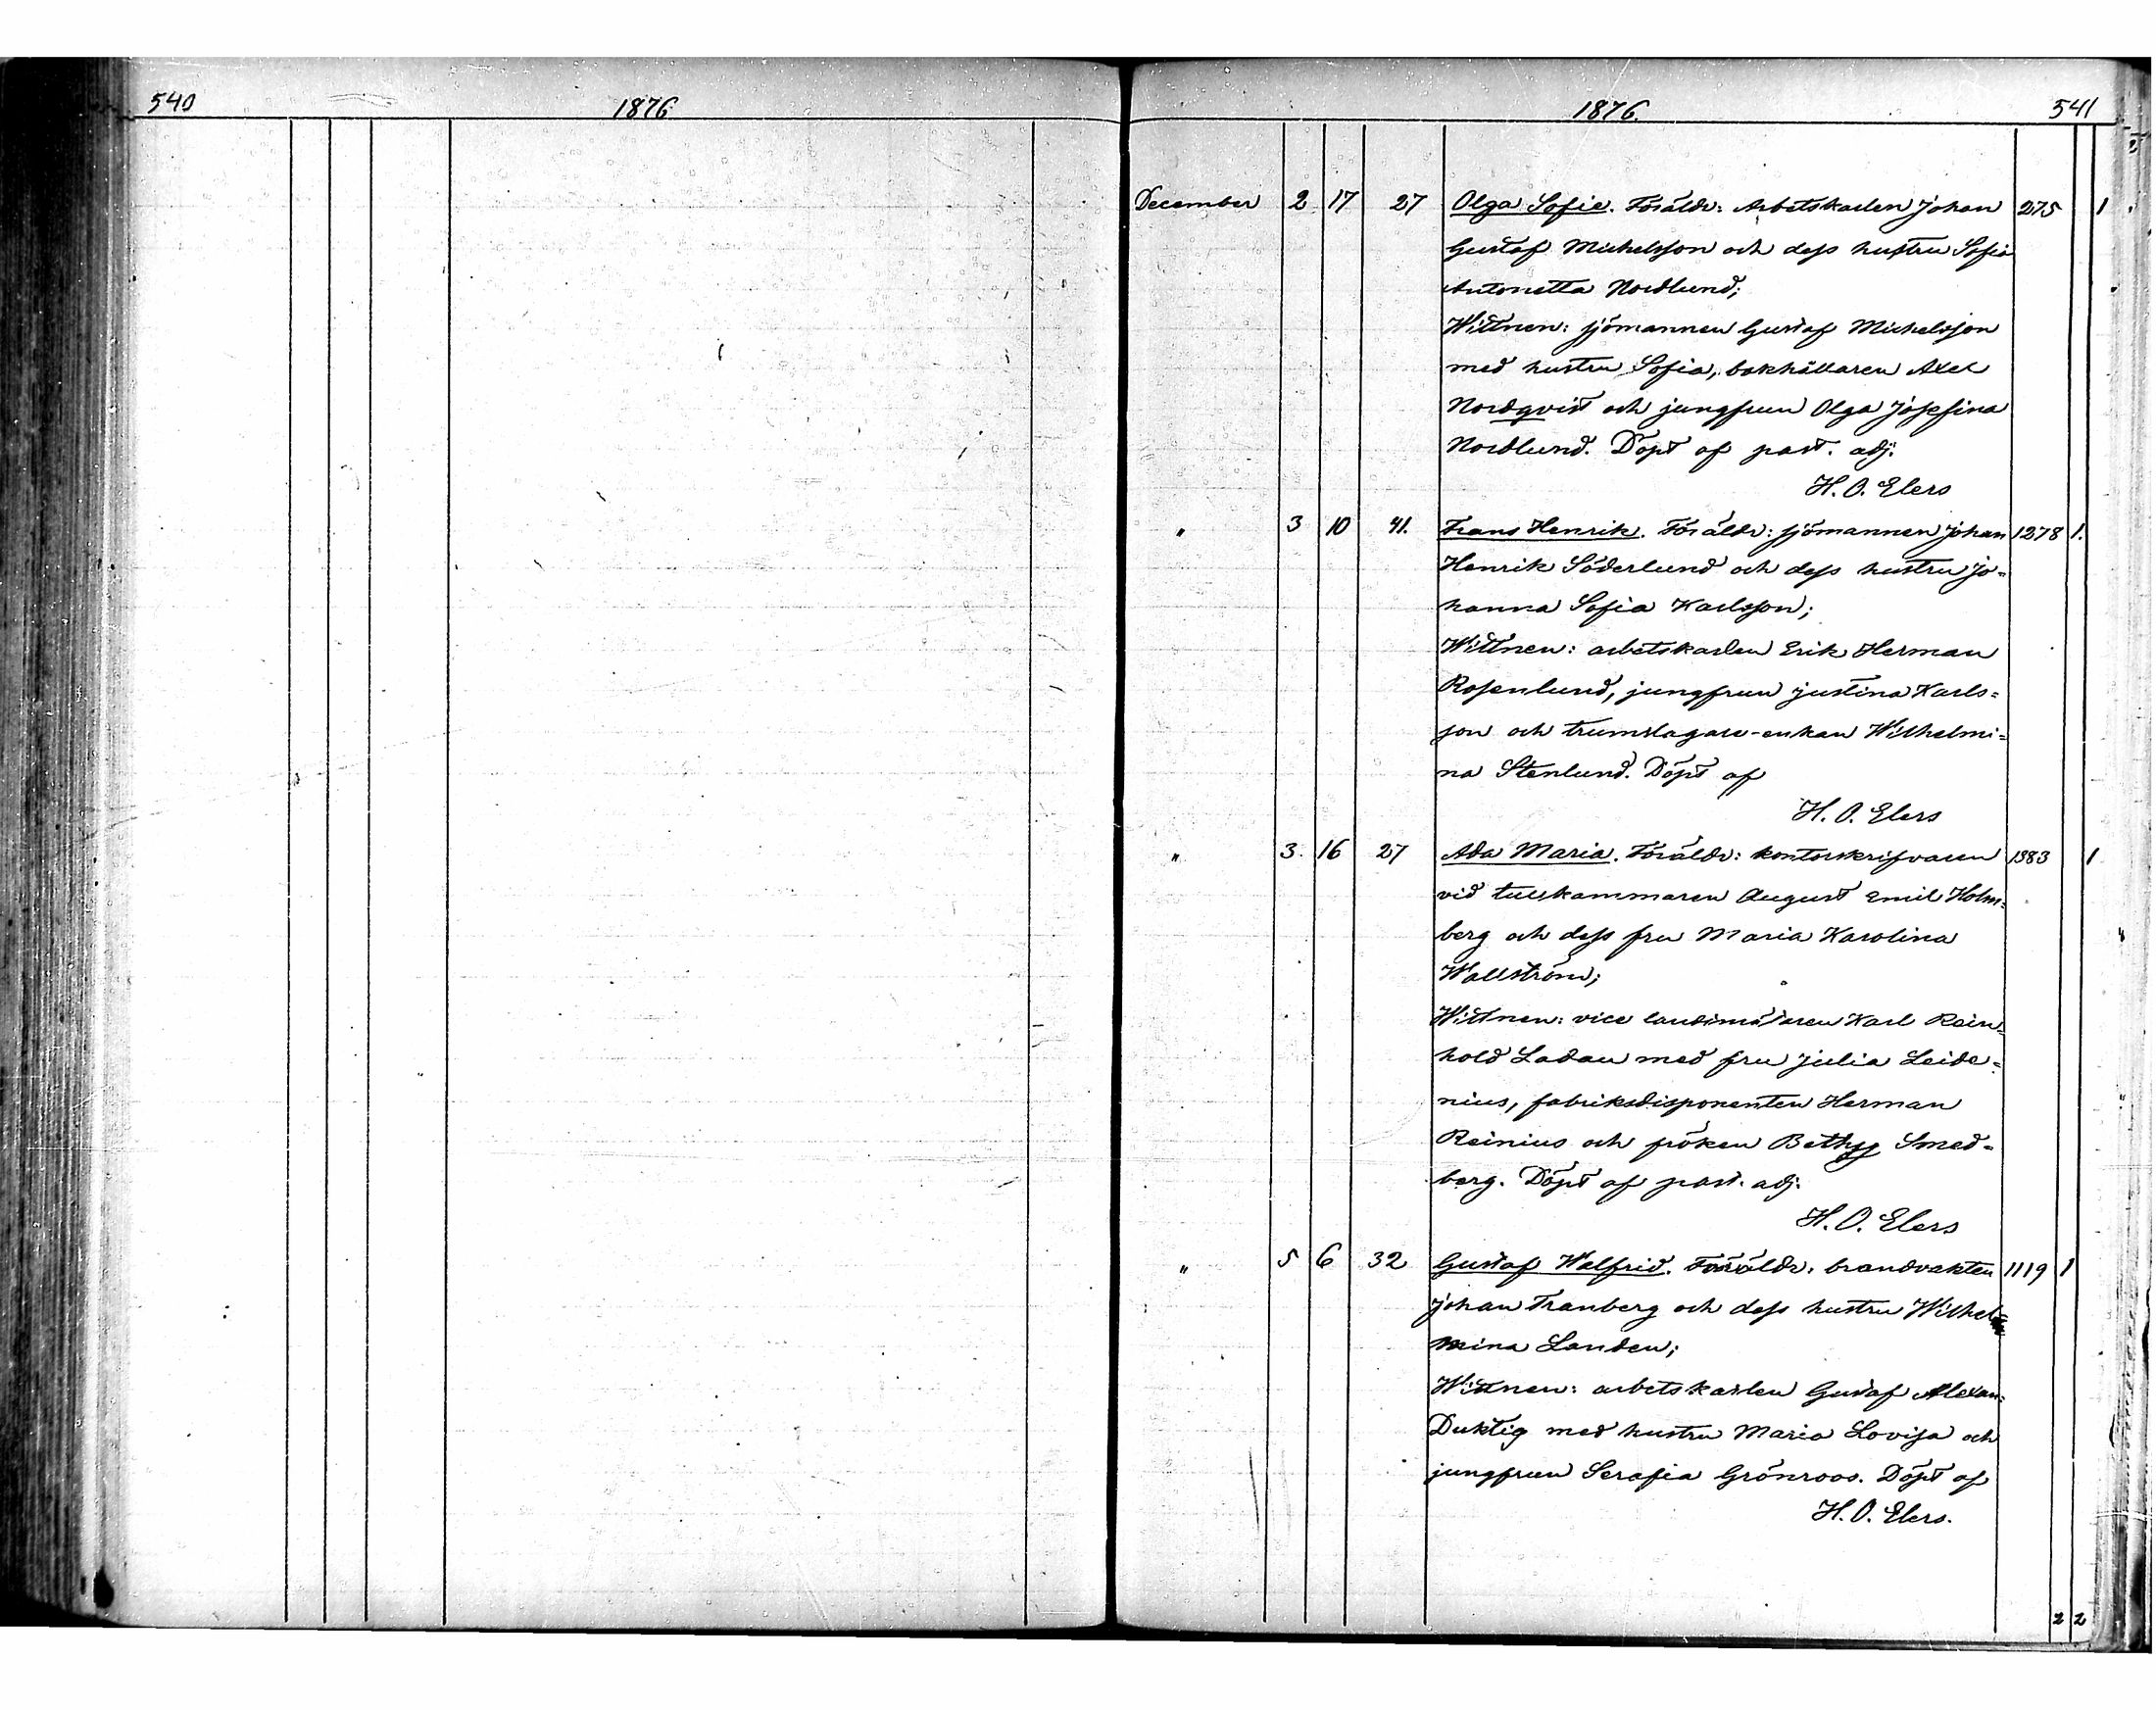 540
1876
1876.
541
December 2 17 27 Olga Sofie. Föräldr: Arbetskarlen Johan 275 1
Gustaf Michelsson och dess hustru Sofia
Antonetta Nordlund;
Wittnen: sjömannen Gustaf Michelsson
med hustru Sofia, bokhållaren Axel
Nordqvist och jungfrun Olga Josefina
Nordlund. Döpt af past. adj.
H. O. Elers
" 3 10 41. Frans Henrik. Föräldr: sjömannen Johan 1278 1.
Henrik Söderlund och dess hustru Jo=
hanna Sofia Karlsson;
Wittnen: arbetskarlen Erik Herman
Rosenlund, jungfrun Justina Karls=
son och trumslagare-enkan Wilhelmi=
na Stenlund. Döpt af
H. O. Elers
" 3. 16 27 Ada Maria. Föräldr: kontorskrifvaren 1383 1
vid tullkammaren August Emil Holm=
berg och dess fru Maria Karolina
Wallström;
Wittnen: vice landtmätaren Karl Rein=
hold Ladau med fru Julia Leide=
nius, fabriksdisponenten Herman
Reinius och fröken Bethyy Smed=
berg. Döpt af past. adj.
H. O. Elers
" 5 6 32 Gustaf Walfrid. Föräldr: brandvakten 1119 1
Johan Tranberg och dess hustru Wilhel=
mina Landen;
Wittnen: arbetskarlen Gustaf Alexan=
Duktig med hustru Maria Lovisa och
jungfrun Serafia Grönroos. Döpt af
H. O. Elers.
2 2